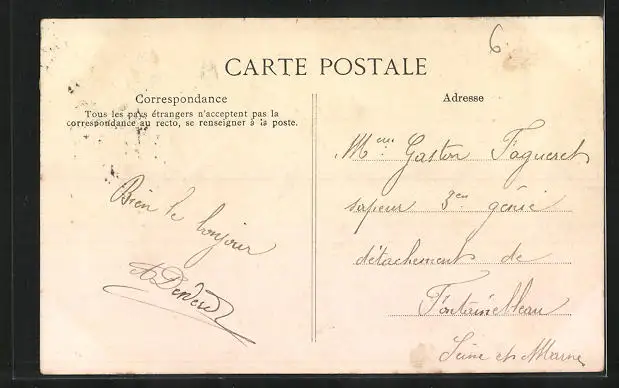 6
CARTE POSTALE
Correspondance
Tous les pays étrangers n'acceptent pas la
correspondance au recto, se renseigner à la poste.
Bien le bonjour
Adresse
Gaston Fagueret
sapeur 3en génie
détachement de
Fontainebleau
Seine et Marne